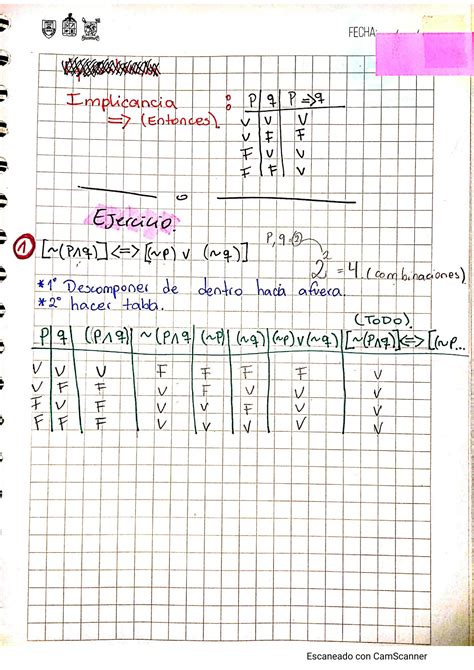 FECHA:
Implicancia : P | q | P => q
=> (Entonces) V | V | V
V | F | F
F | V | V
F | F | V
Ejercicio.
① [~(P∧q)] <=> [(~P) ∨ (~q)] P, q. ② 2² = 4. (combinaciones)
*1° Descomponer de dentro hacia afuera.
*2° hacer tabla.
(TODO).
P | q | (P∧q) | ~(P∧q) | (~P) | (~q) | (~P)∨(~q) | [~(P∧q)] <=> [(~P...
V | V | V | F | F | F | F | V
V | F | F | V | F | V | V | V
F | V | F | V | V | F | V | V
F | F | F | V | V | V | V | V
Escaneado con CamScanner